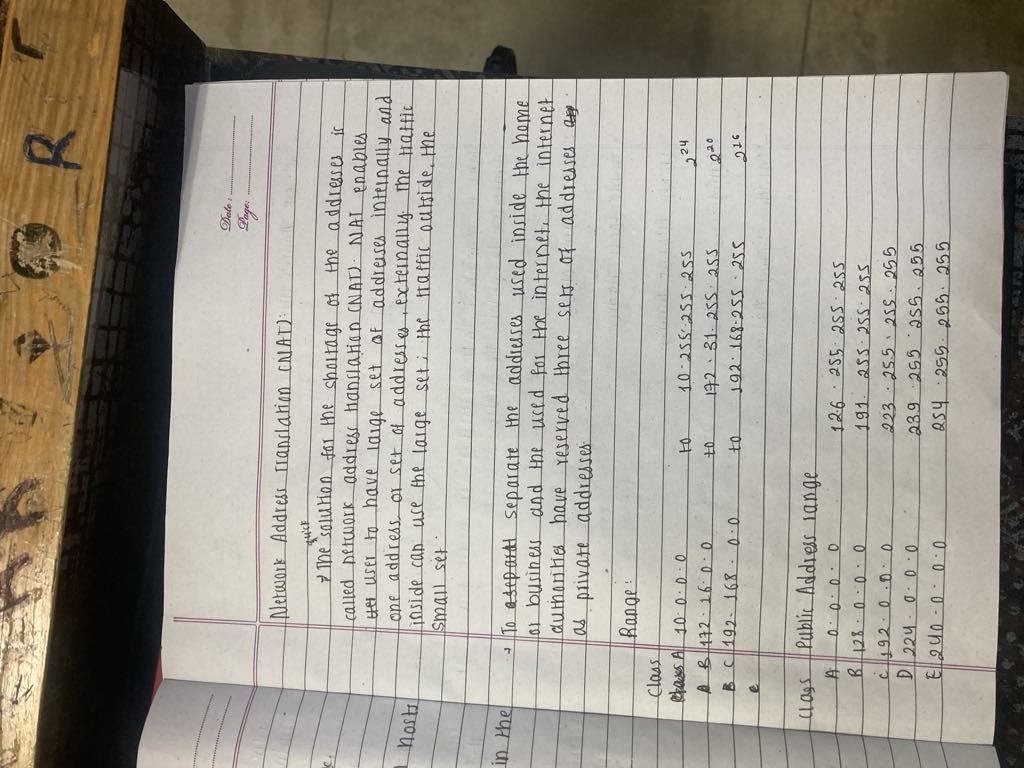 R
Date :
Page:
Network Address Translation (NAT):
quick
→ The solution for the shortage of the addresses is
called network address translation (NAT). NAT enables
user to have large set of addresses internally and
one address or set of addresses, externally The traffic
inside can use the large set; the traffic outside, the
small set.
→ To separate the addresses used inside the home
or business and the used for the internet, the internet
authorities have reserved three sets of addresses
as private addresses
Range:
Class
A 10.0.0.0 to 10.255.255.255 2²⁴
B 172.16.0.0 to 172.31.255.255 2²⁰
C 192.168.0.0 to 192.168.255.255 2¹⁶
Class Public Address range
A 0.0.0.0 126.255.255.255
B 128.0.0.0 191.255.255.255
C 192.0.0.0 223.255.255.255
D 224.0.0.0 239.255.255.255
E 240.0.0.0 254.255.255.255
hosts
in the